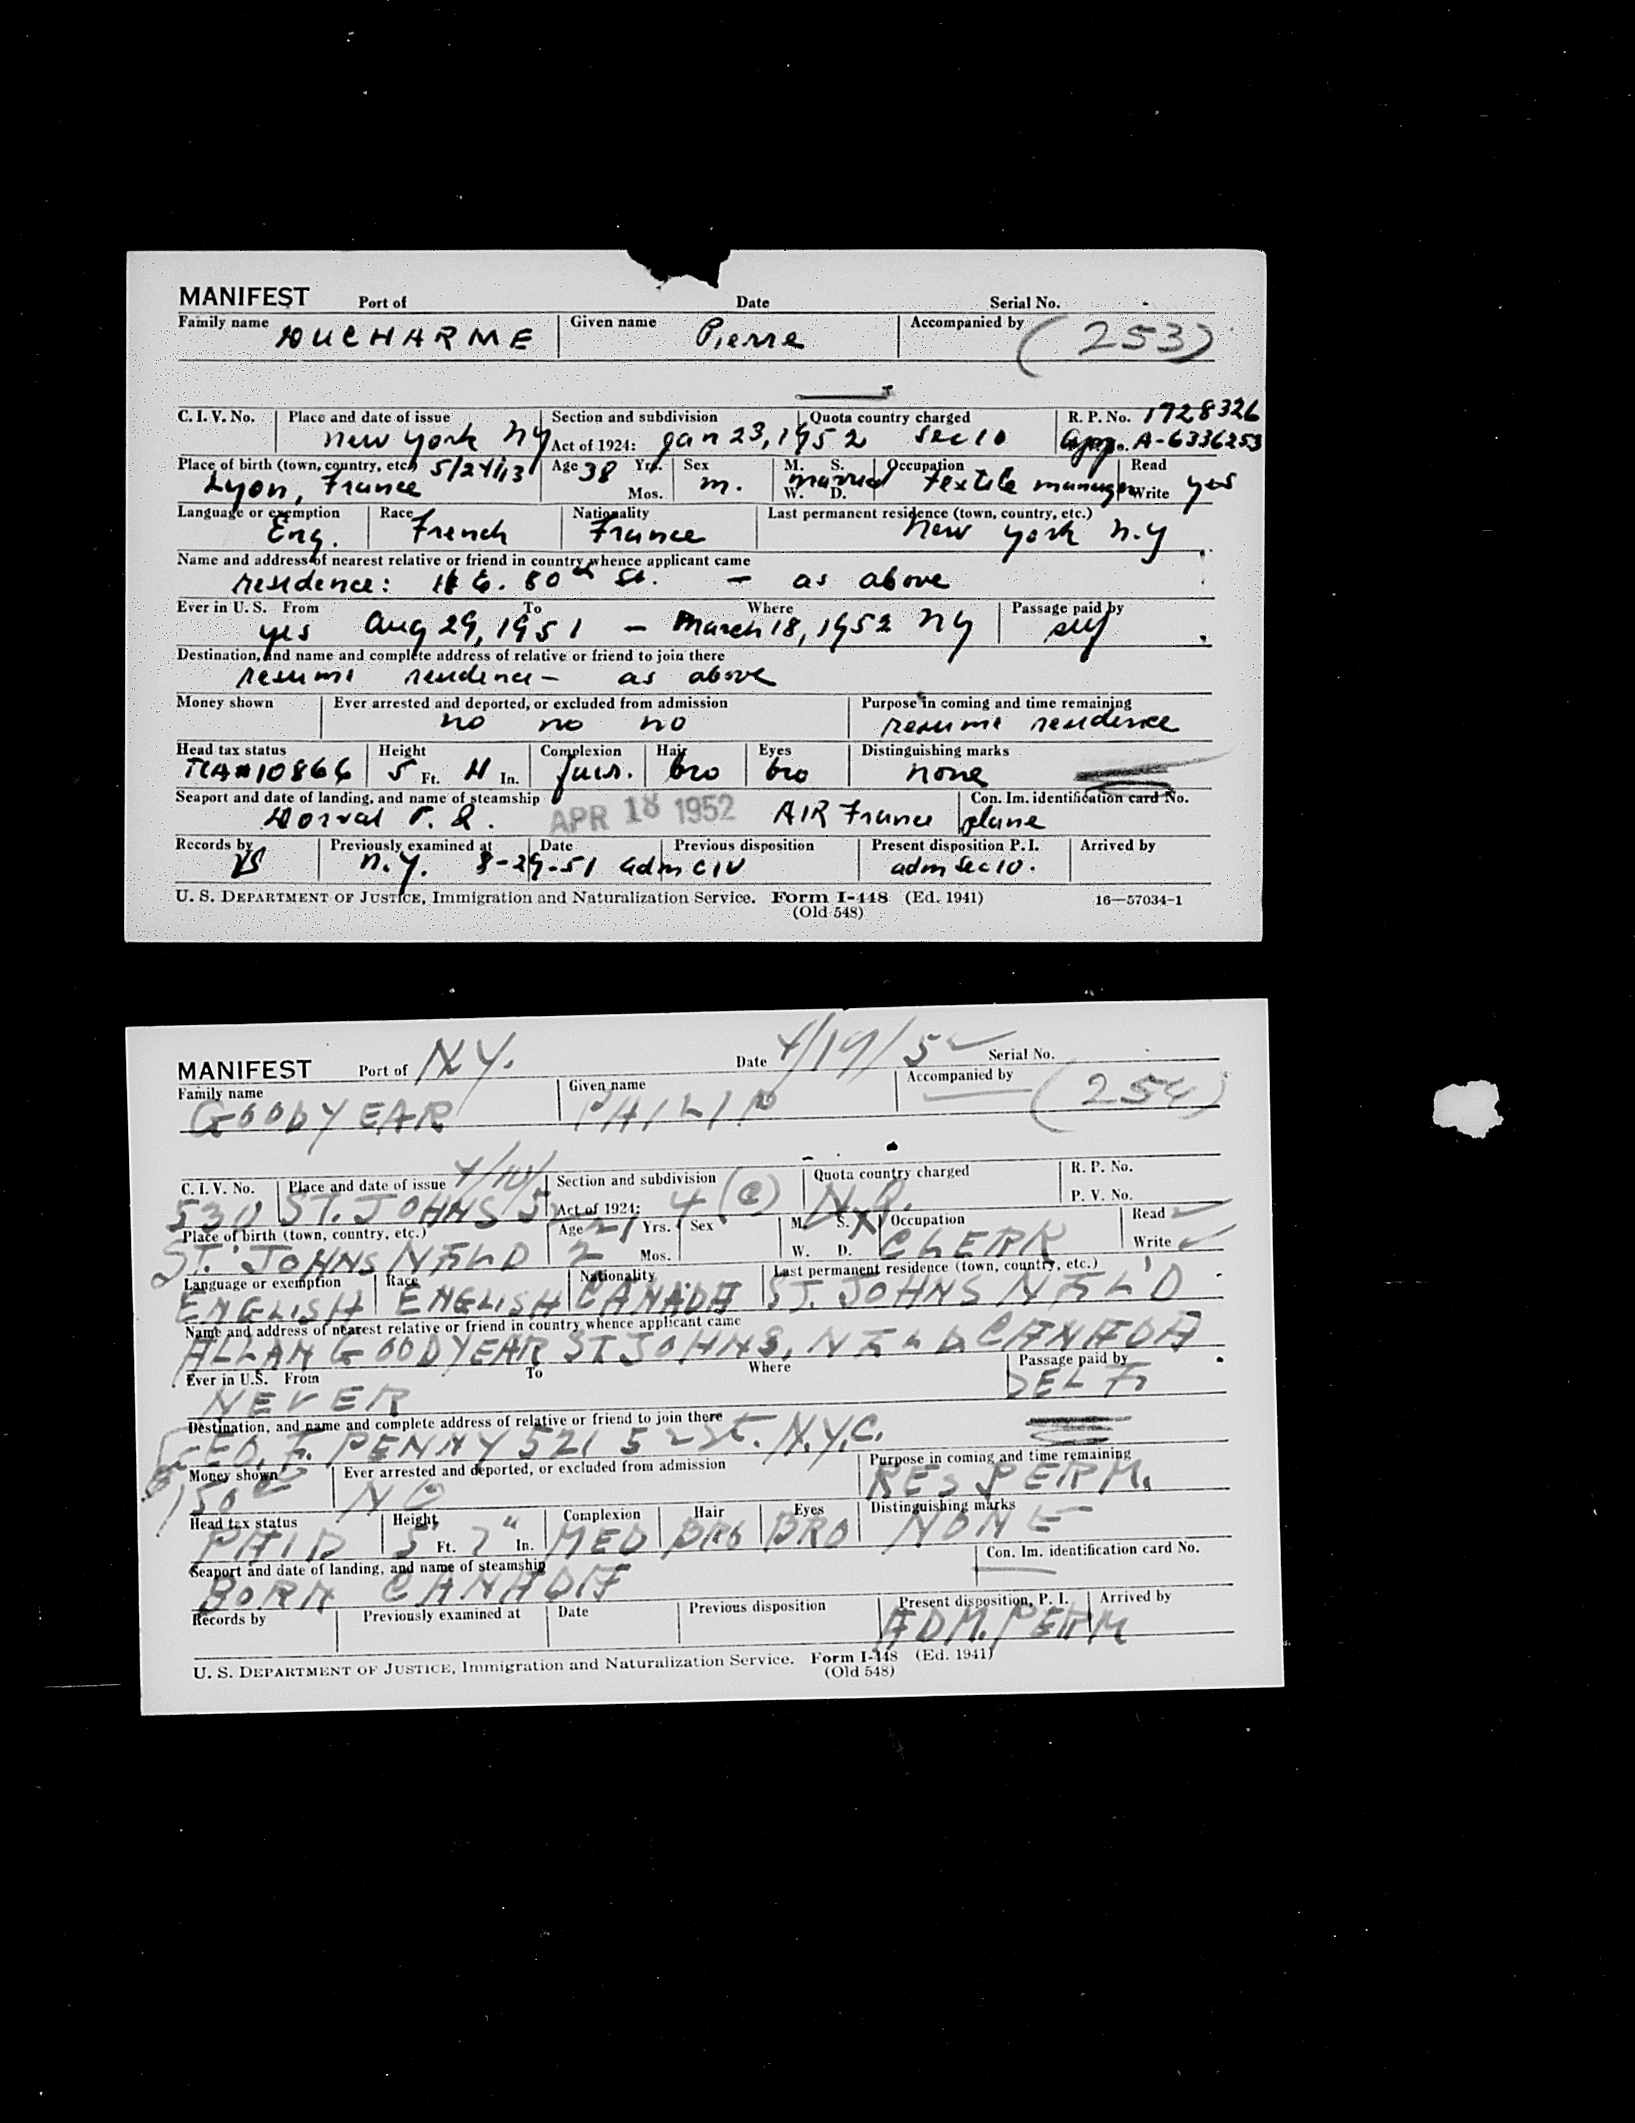 MANIFEST Port of Date Serial No.
Family name DUCHARME Given name Pierre Accompanied by (253)
C. I. V. No. Place and date of issue Section and subdivision Quota country charged R. P. No. 1728326
new york ny Act of 1924: Jan 23, 1952 sec 10 A-6336253
Place of birth (town, country, etc.) 5/24/13 Age 38 Yrs. Sex M. S. Occupation Read
Lyon, France Mos. m. married W. D. textile manager Write yes
Language or exemption Race Nationality Last permanent residence (town, country, etc.)
Eng. French France new york n.y
Name and address of nearest relative or friend in country whence applicant came
residence: 80 St. — as above
Ever in U. S. From To Where Passage paid by
yes Aug 29, 1951 — March 18, 1952 ny self
Destination, and name and complete address of relative or friend to join there
resume residence — as above
Money shown Ever arrested and deported, or excluded from admission Purpose in coming and time remaining
no no no resume residence
Head tax status Height Complexion Hair Eyes Distinguishing marks
5 Ft. In. fair. bro bro none
Seaport and date of landing, and name of steamship Con. Im. identification card No.
Dorval P. Q. APR 18 1952 AIR France plane
Records by Previously examined at Date Previous disposition Present disposition P. I. Arrived by
n.y. 8-29-51 adm CIV adm sec 10.
U. S. DEPARTMENT OF JUSTICE, Immigration and Naturalization Service. Form I-448 (Ed. 1941) 16—57034-1
(Old 548)
MANIFEST Port of N.Y. Date 4/19/52 Serial No.
Family name Given name Accompanied by (254)
GOODYEAR PHILIP
C. I. V. No. Place and date of issue 4/10/52 Section and subdivision Quota country charged R. P. No.
530 ST. JOHNS Act of 1924: 4 (C) N.Q. P. V. No.
Place of birth (town, country, etc.) Age 21 Yrs. Sex M. S. X Occupation Read ✓
ST. JOHNS NFLD 2 Mos. W. D. CLERK Write ✓
Language or exemption Race Nationality Last permanent residence (town, country, etc.)
ENGLISH ENGLISH CANADA ST. JOHNS NFL'D
Name and address of nearest relative or friend in country whence applicant came
ALLAN GOODYEAR ST JOHNS, NFLD CANADA
Ever in U.S. From To Where Passage paid by
NEVER SELF
Destination, and name and complete address of relative or friend to join there
GEO. F. PENNY 521 52 St. N.Y.C.
Money shown Ever arrested and deported, or excluded from admission Purpose in coming and time remaining
$150 NO RES PERM.
Head tax status Height Complexion Hair Eyes Distinguishing marks
PAID 5' Ft. 7" In. MED BRO BRO NONE
Seaport and date of landing, and name of steamship Con. Im. identification card No.
BORN CANADA
Records by Previously examined at Date Previous disposition Present disposition, P. I. Arrived by
ADM. PERM
U. S. DEPARTMENT OF JUSTICE, Immigration and Naturalization Service. Form I-448 (Ed. 1941)
(Old 548)